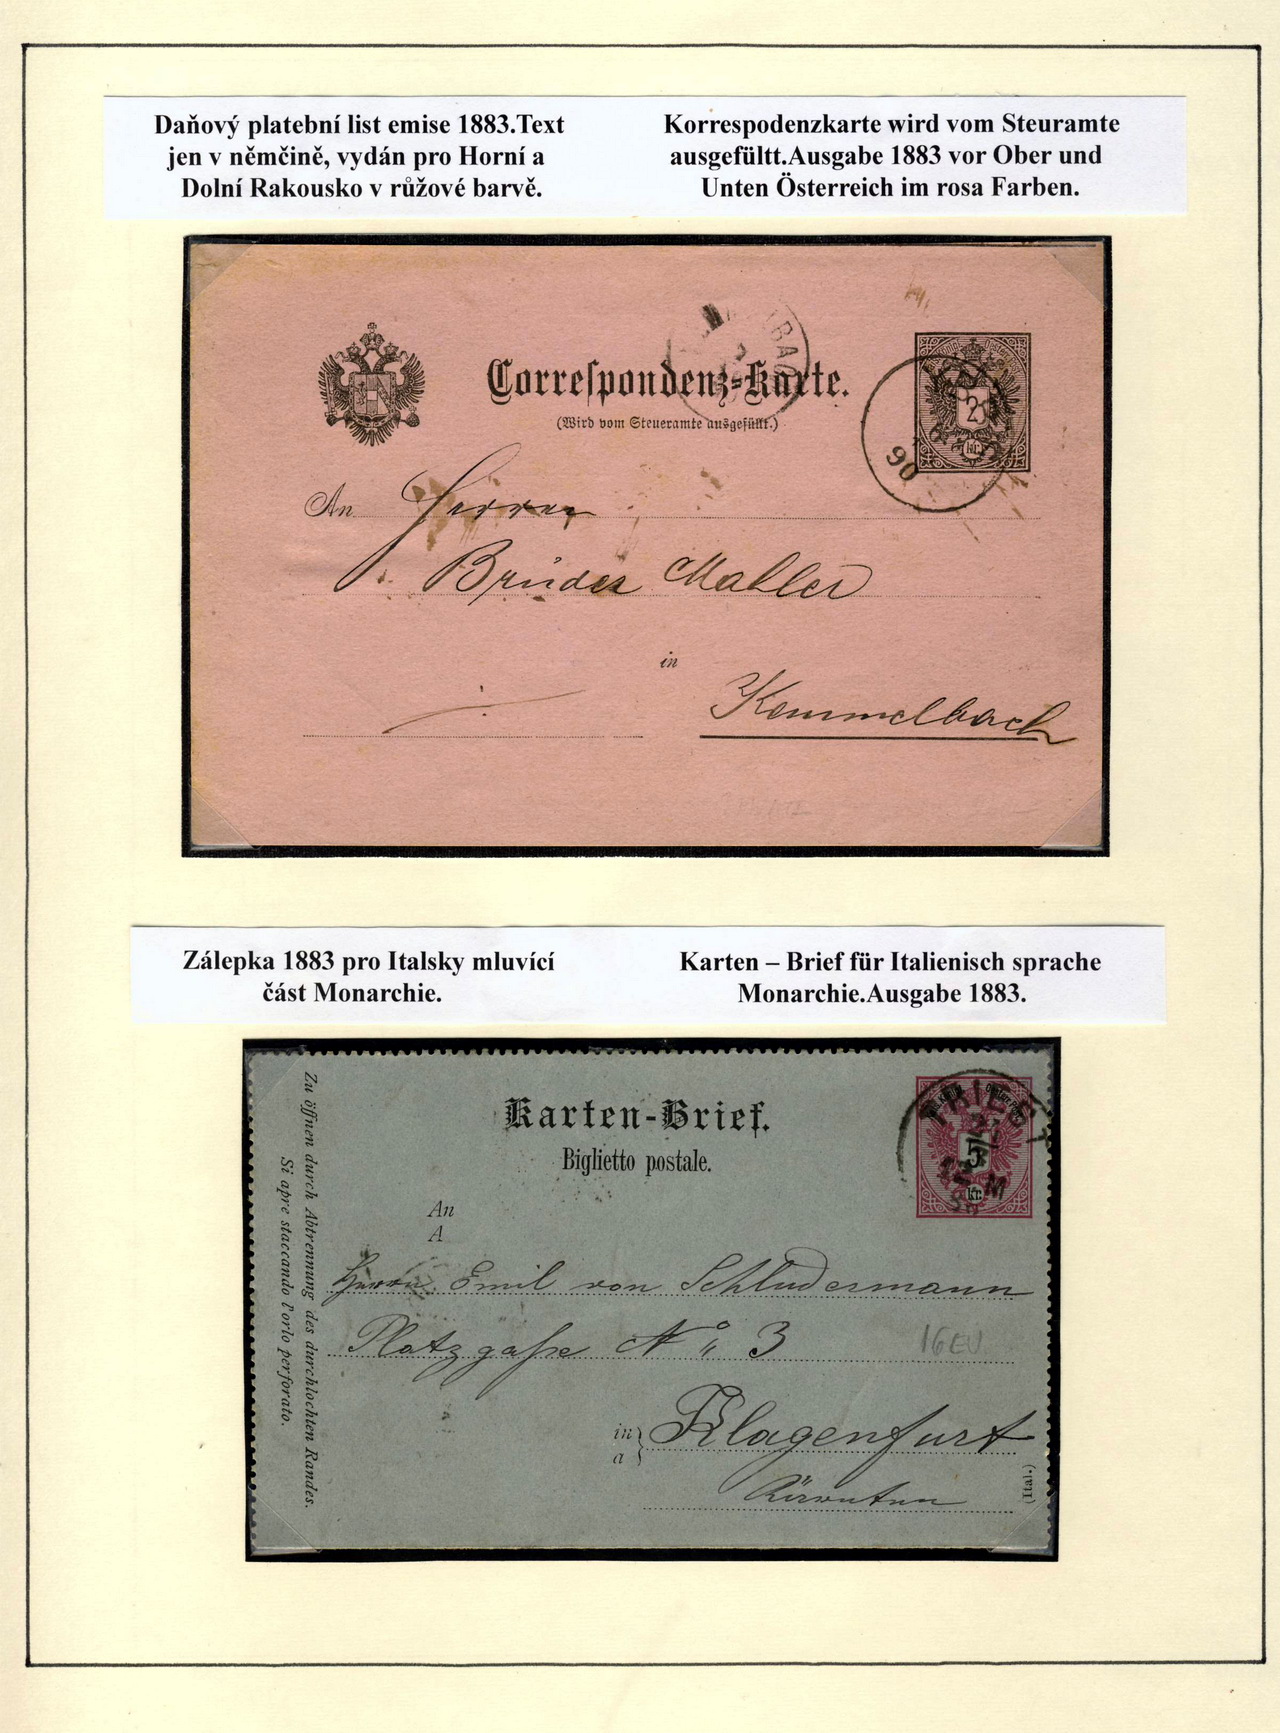 Daňový platební list emise 1883.Text
jen v němčině, vydán pro Horní a
Dolní Rakousko v růžové barvě.
Korrespodenzkarte wird vom Steuramte
ausgefültt.Ausgabe 1883 vor Ober und
Unten Österreich im rosa Farben.
Correſpondenz-Karte.
(Wird vom Steueramte ausgefüllt.)
2
kr.
90
An Herren
Brüder Mahler
in
Kemmelbach
Zálepka 1883 pro Italsky mluvící
část Monarchie.
Karten – Brief für Italienisch sprache
Monarchie.Ausgabe 1883.
Zu öffnen durch Abtrennung des durchlochten Randes.
Si apre staccando l'orlo perforato.
Karten-Brief.
Biglietto postale.
TRIEST
5
kr.
M
An
A
Herrn Emil von Schludermann
Platzgaße No 3
16EU
in
a
Klagenfurt
Kärnten
(Ital.)